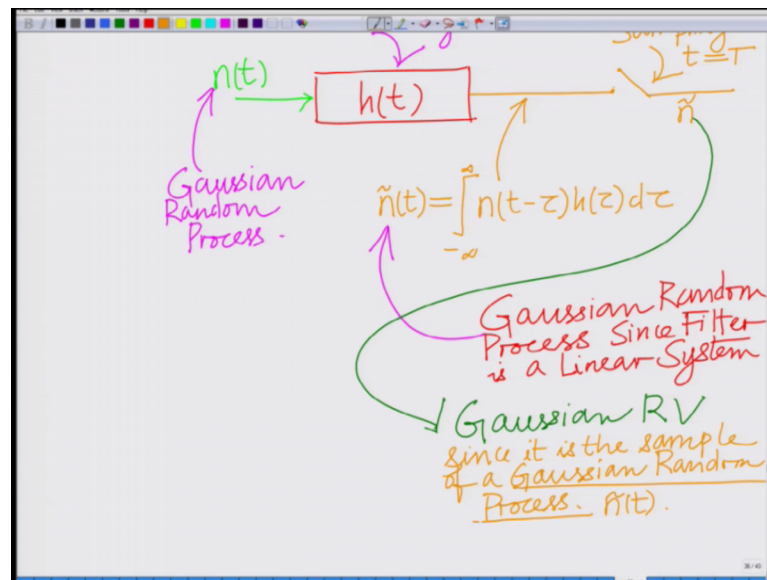 t = T
n(t)
h(t)
ñ
Gaussian
Random
Process.
ñ(t) = ∫_{-∞}^{∞} n(t-τ) h(τ) dτ
Gaussian Random
Process Since Filter
is a Linear System
Gaussian RV
since it is the sample
of a Gaussian Random
Process. ñ(t).